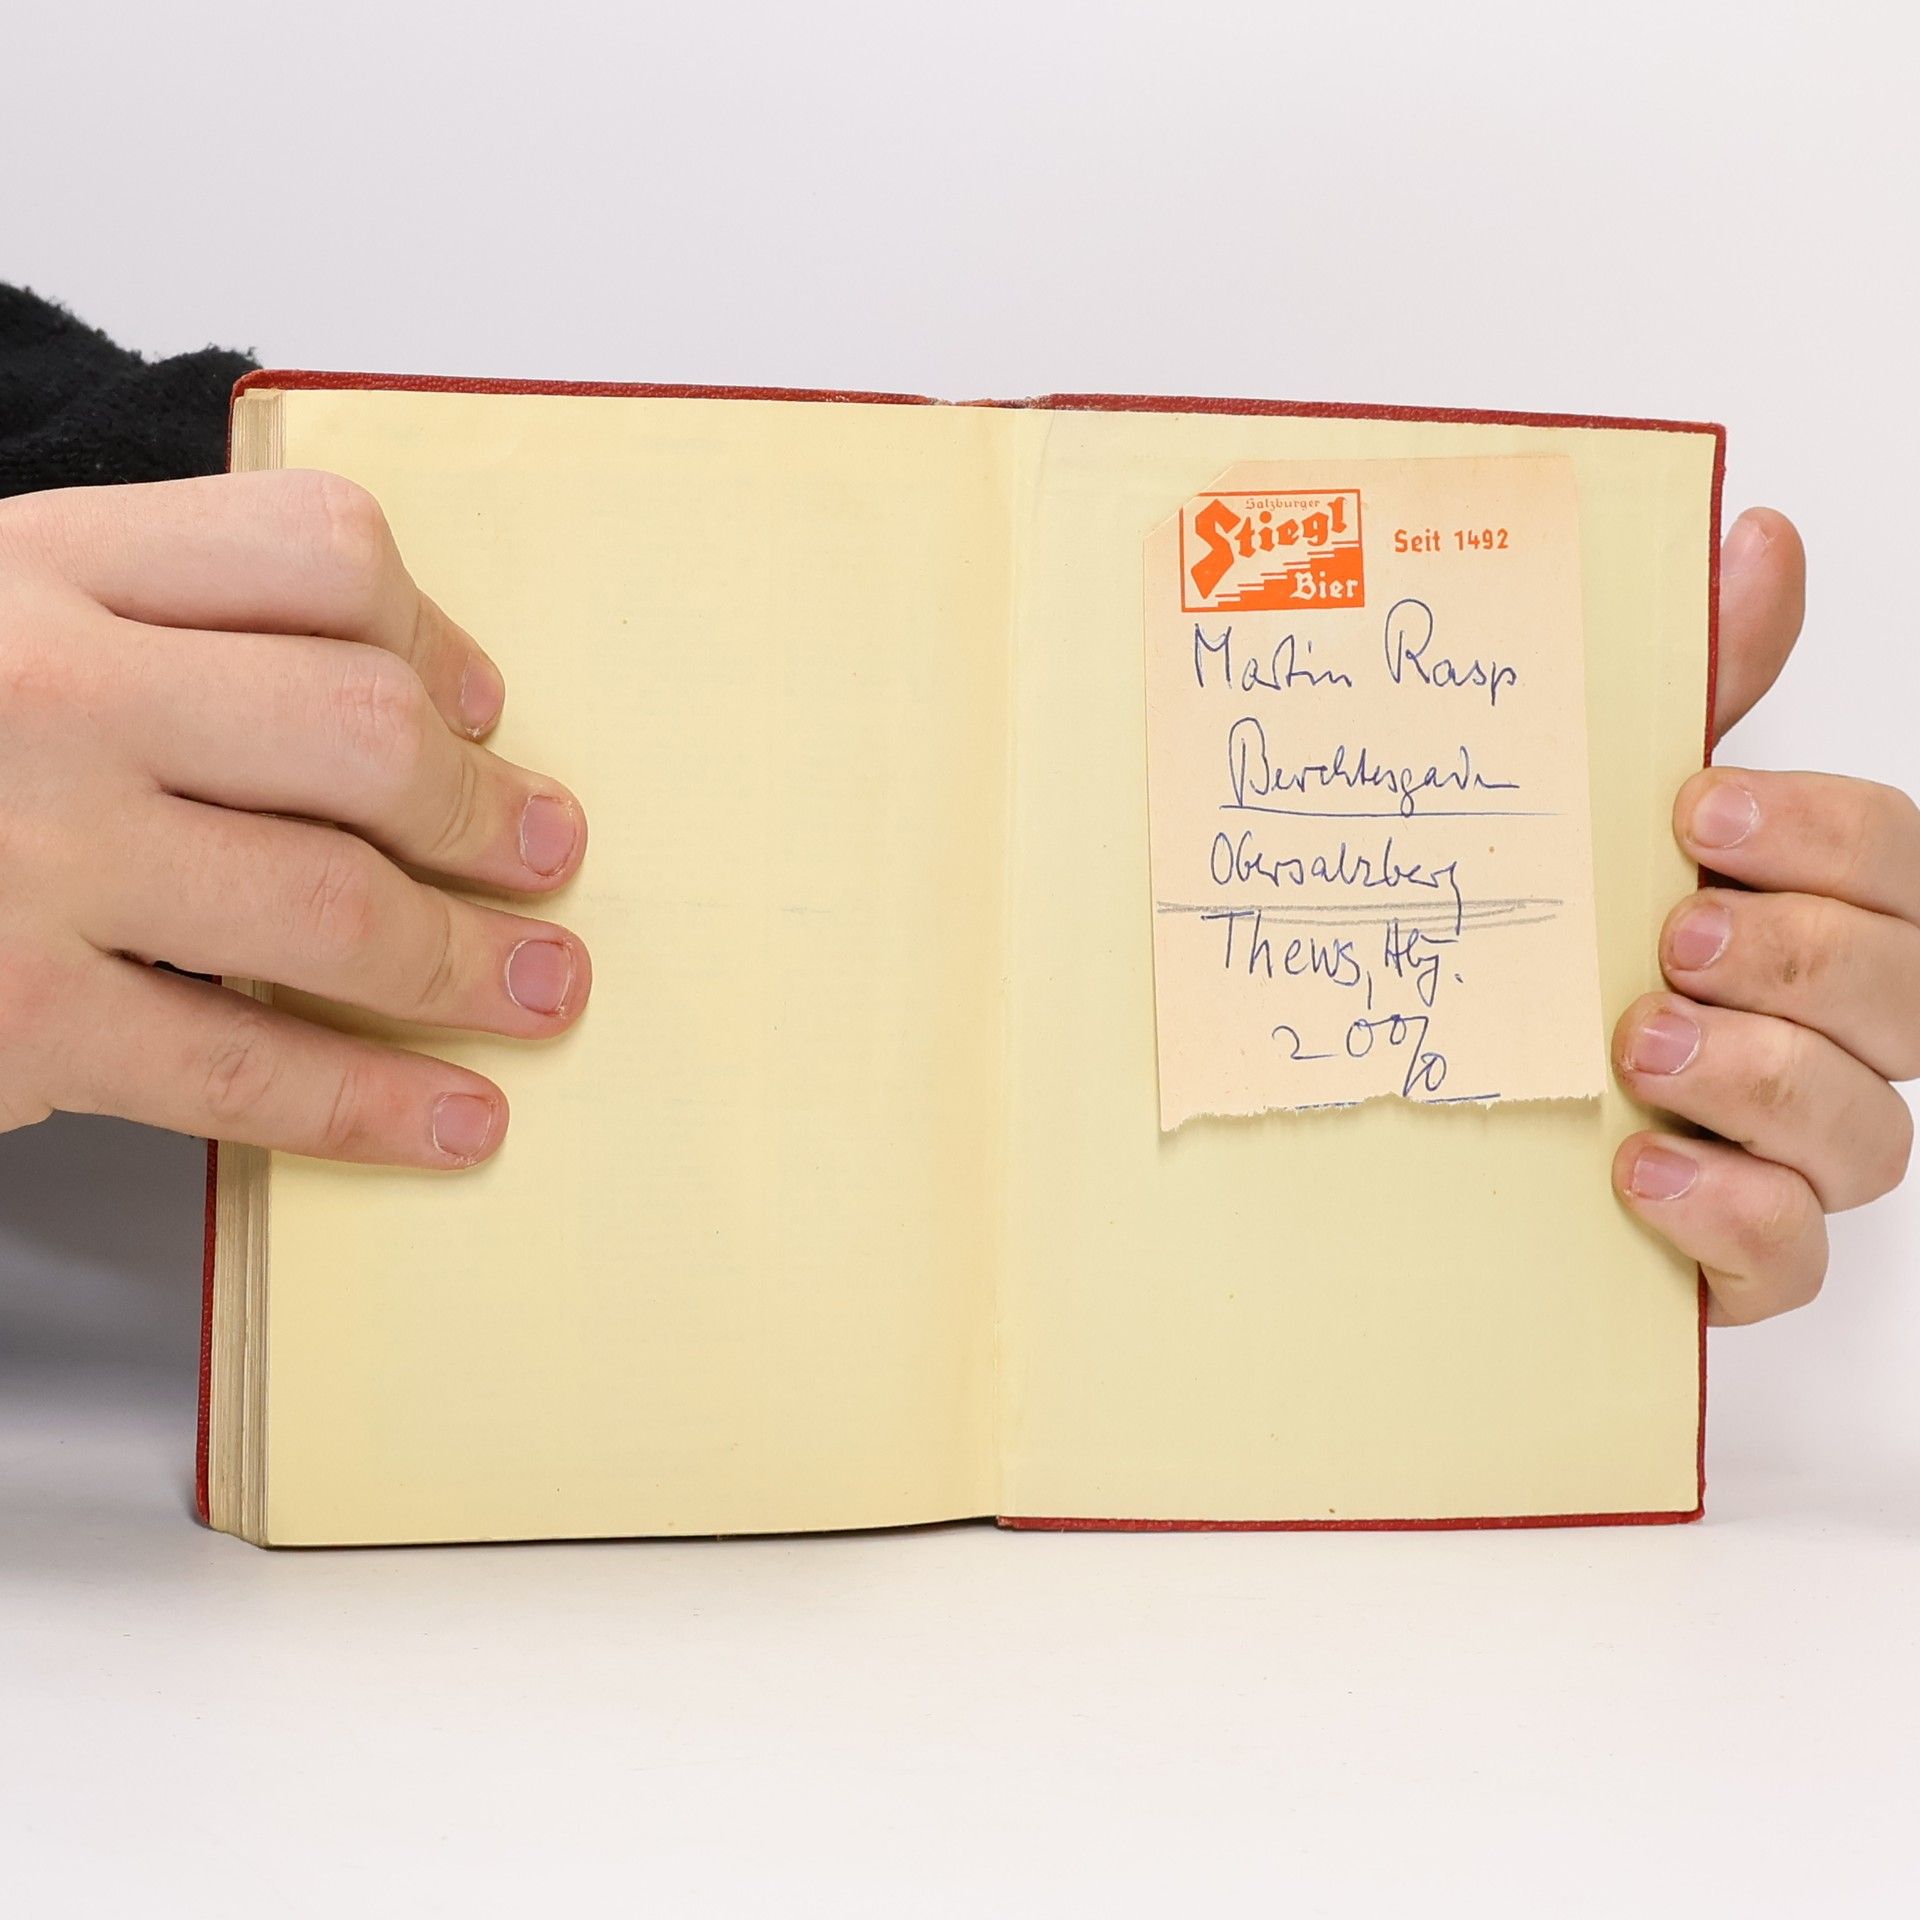 Salzburger
Stiegl
Bier
Seit 1492
Martin Rasp
Berchtesgaden
Obersalzberg
Thews, Hbg.
200%